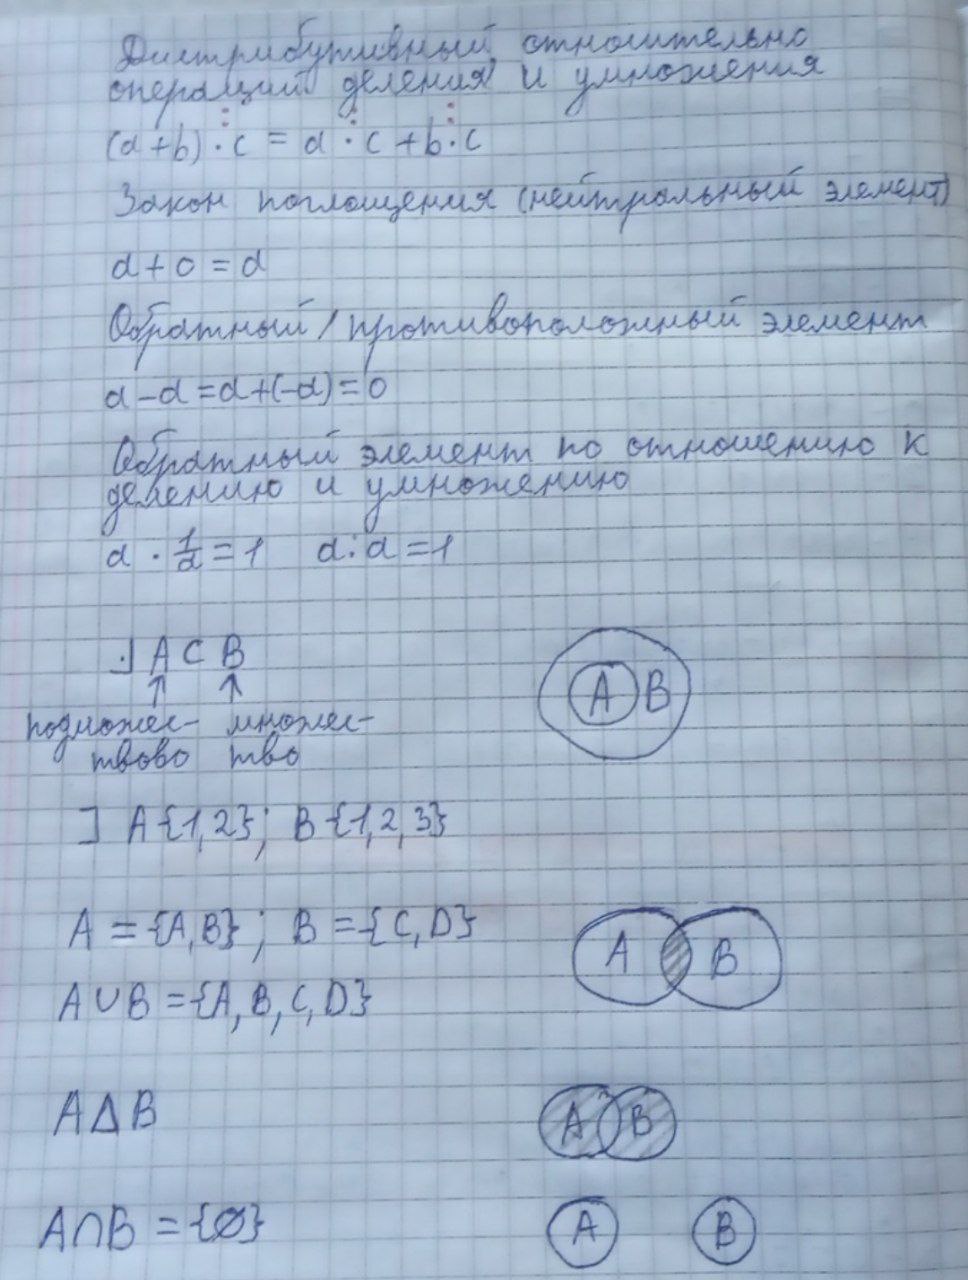 Дистрибутивный относительно
операций деления и умножения
(a+b) : · c = a : · c + b : · c
Закон поглощения (нейтральный элемент)
a + 0 = a
Обратный / противоположный элемент
a - a = a + (-a) = 0
Обратный элемент по отношению к
делению и умножению
a · 1/a = 1 a : a = 1
] A ⊂ B
A B
подможес- множес-
твово тво
] A {1,2}; B {1,2,3}
A = {A,B}; B = {C,D}
A B
A ∪ B = {A, B, C, D}
A Δ B
A B
A ∩ B = {∅}
A B